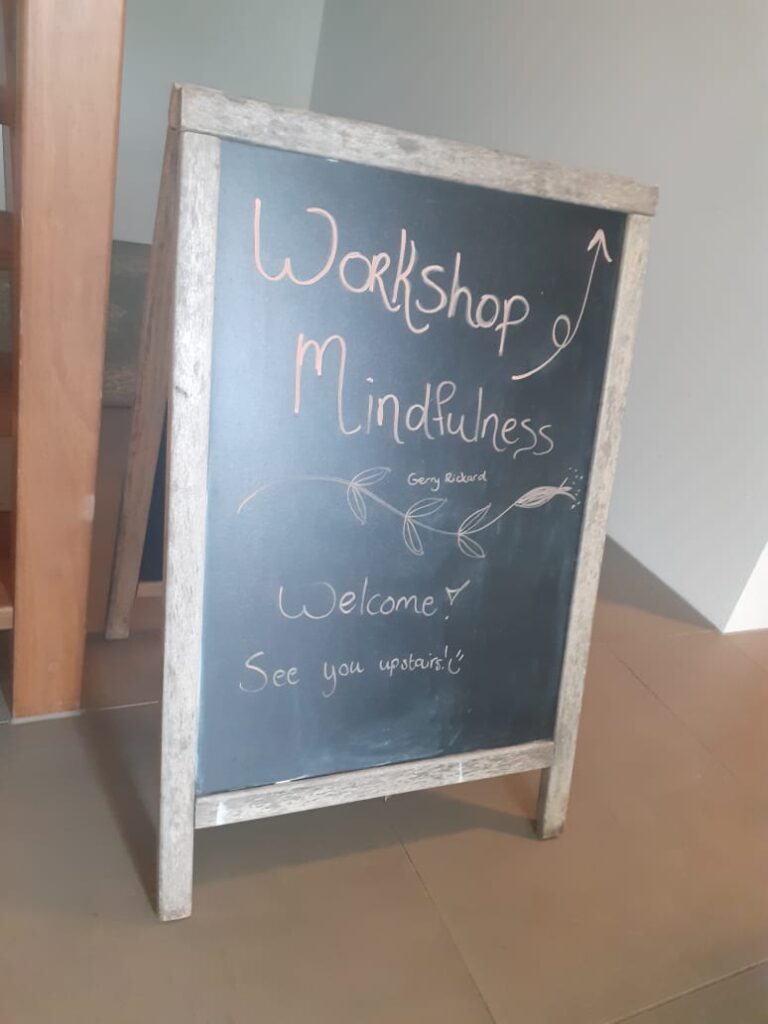 Workshop
Mindfulness
Gerry Rickard
Welcome!
See you upstairs!